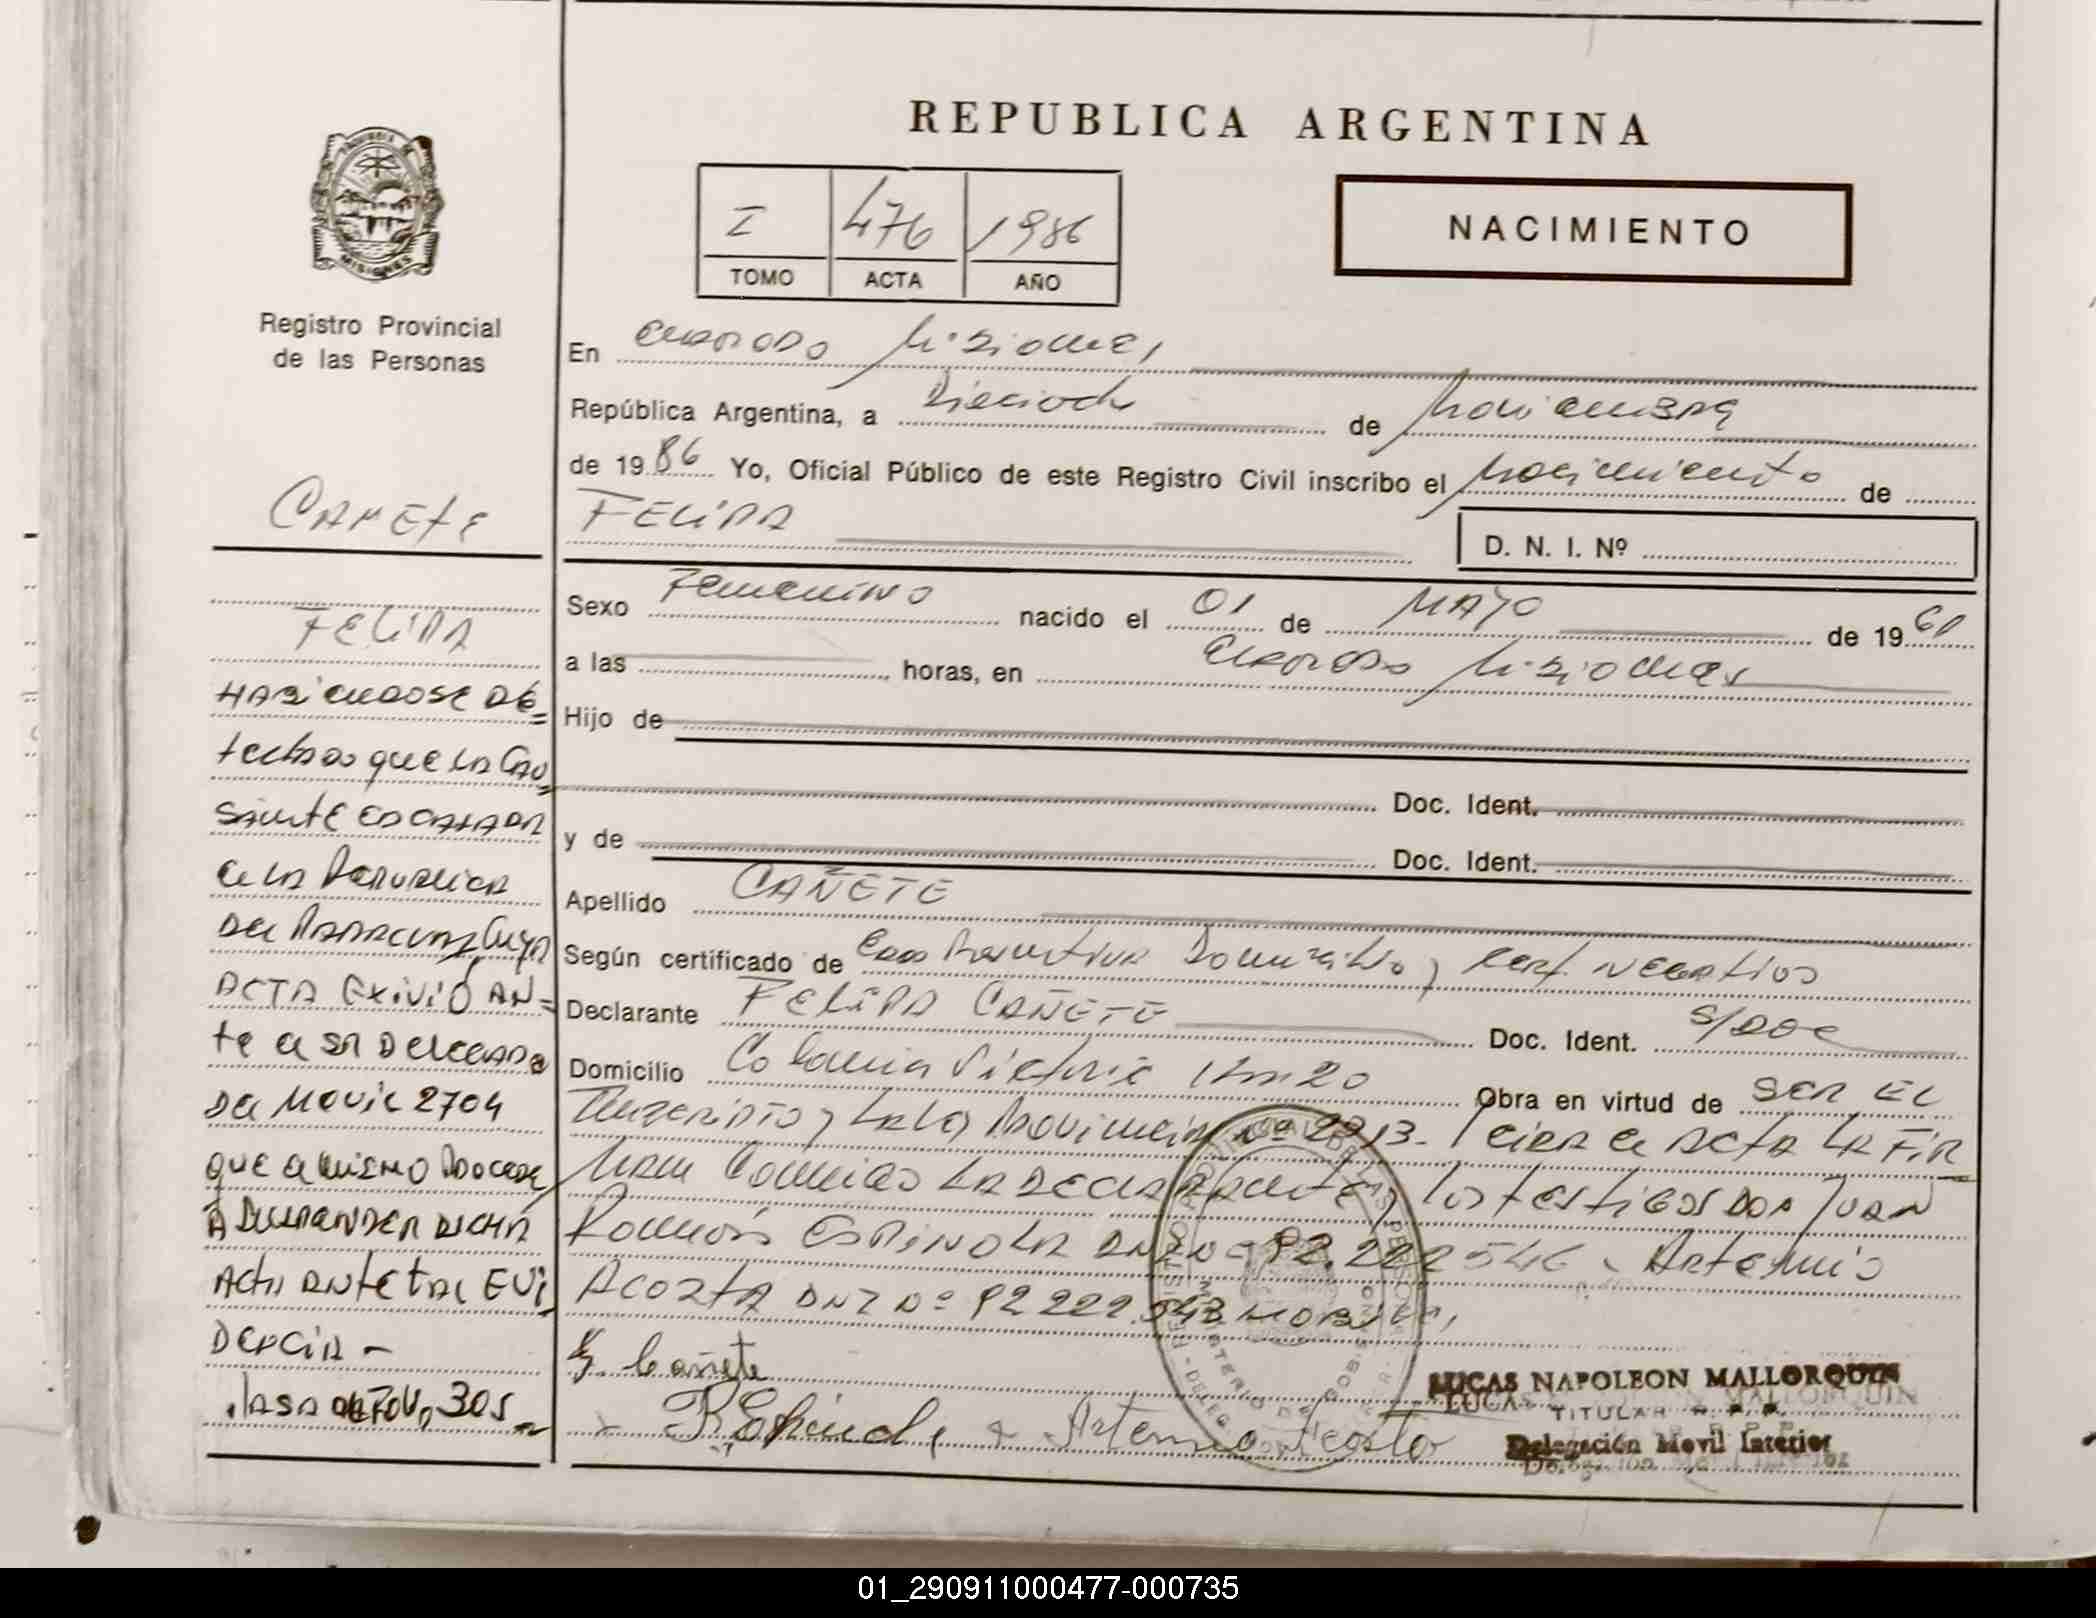 REPUBLICA ARGENTINA
I 476 1986
TOMO ACTA AÑO
NACIMIENTO
MISIONES
Registro Provincial
de las Personas
En Eldorado Misiones,
República Argentina, a Dieciocho de Noviembre
de 1986 Yo, Oficial Público de este Registro Civil inscribo el Nacimiento de
FELIPA
D. N. I. Nº
Sexo Femenino nacido el 01 de MAYO de 19
a las horas, en Eldorado Misiones
Hijo de
Doc. Ident.
y de
Doc. Ident.
Apellido CAÑETE
Según certificado de Negativo
Declarante FELIPA CAÑETE Doc. Ident. S/DOC
Domicilio Colonia Victoria Km 20 Obra en virtud de SER EL
Inscripto y Ley Provincial Nº 2913. Leida el ACTA LA FIR
Man Conmigo LA DECLARANTE y los testigos DON JUAN
Ramón ESPINOLA DNI Nº 92.222 546 Artemio
ACOSTA DNI Nº 92 222.543
CAÑETE
FELIPA
HABIENDOSE DE=
tectado que la Cau
SANTE
de la REPUBLICA
DEL PARAGUAY Cuya
ACTA EXIVIÓ AN=
te
DEL MOVIL 2704
que
DICHA
ACTA ANTE TAL EVI
DENCIA -
PASA AL FOLIO 305
Cañete
Artemio Acosta
LUCAS NAPOLEON MALLORQUIN
TITULAR R. P. P.
Delegación Movil Interior
01_290911000477-000735